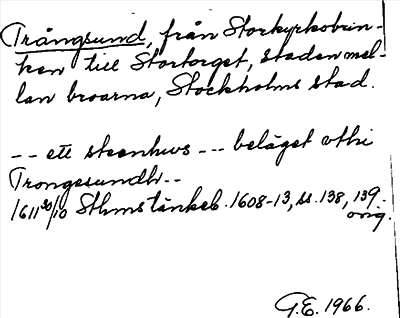 Trångsund, från Storkyrkobrin-
ken till Stortorget, staden mel-
lan broarna, Stockholms stad.
-- ett steenhws --- beläget vthi
Trongesundh--
1611 30/10 Sthms tänkeb. 1608-13, ss. 138, 139.
orig.
G.E. 1966.